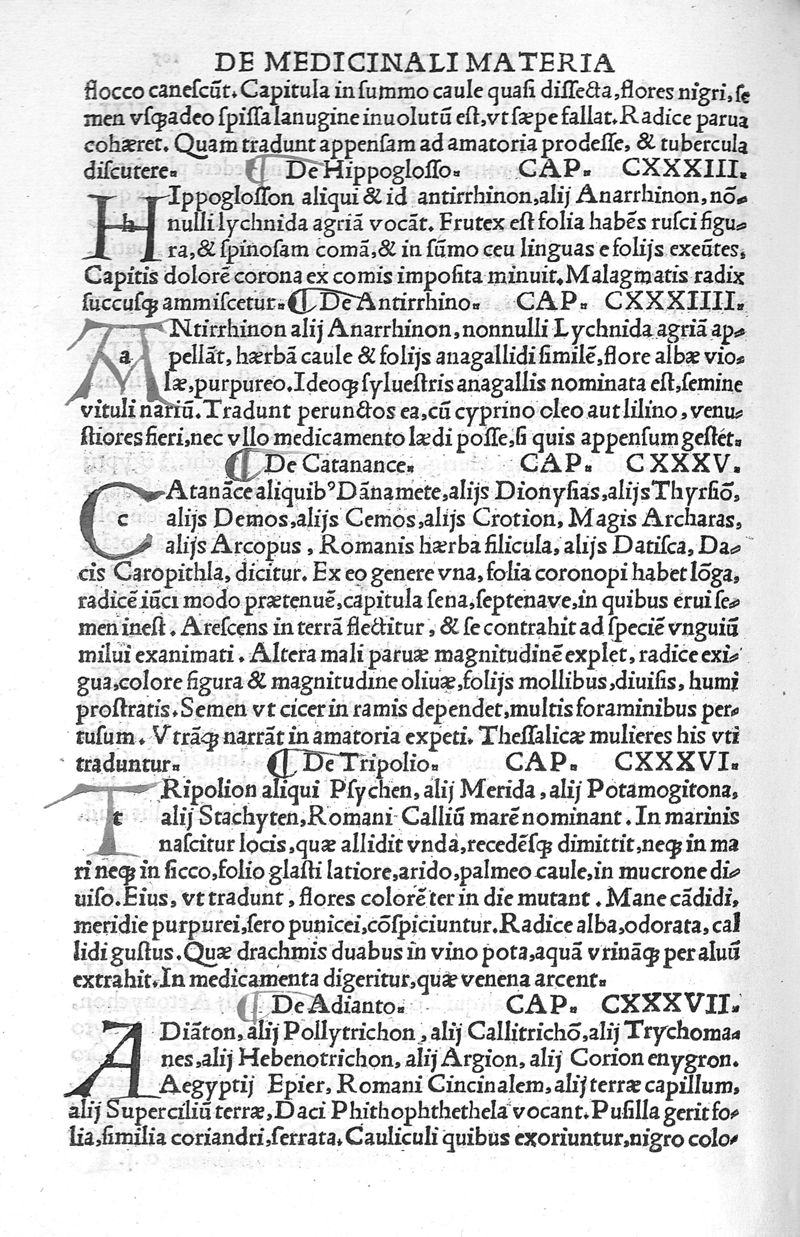 DE MEDICINALI MATERIA
flocco canescũt. Capitula in summo caule quasi dissecta, flores nigri, se
men vsqꝫadeo spissa lanugine inuolutũ est, vt sæpe fallat. Radice parua
cohæret. Quam tradunt appensam ad amatoria prodesse, & tubercula
discutere. ¶ De Hippoglosso. CAP. CXXXIII.
HIppoglosson aliqui & id antirrhinon, alij Anarrhinon, nõ-
nulli lychnida agriã vocãt. Frutex est folia habẽs rusci figu-
ra, & spinosam comã, & in sũmo ceu linguas e folijs exeũtes,
Capitis dolorẽ corona ex comis imposita minuit. Malagmatis radix
succusqꝫ ammiscetur. ¶ De Antirrhino. CAP. CXXXIIII.
ANtirrhinon alij Anarrhinon, nonnulli Lychnida agriã ap-
pellãt, hærbã caule & folijs anagallidi similẽ, flore albæ vio-
læ, purpureo. Ideoqꝫ syluestris anagallis nominata est, semine
vituli nariũ. Tradunt perunctos ea, cũ cyprino oleo aut lilino, venu-
stiores fieri, nec vllo medicamento lædi posse, si quis appensum gestet.
¶ De Catanance. CAP. CXXXV.
CAtanãce aliquibꝰ Dãnamete, alijs Dionysias, alijs Thyrsiõ,
alijs Demos, alijs Cemos, alijs Crotion, Magis Archaras,
alijs Arcopus, Romanis hærba filicula, alijs Datisca, Da-
cis Caropithla, dicitur. Ex eo genere vna, folia coronopi habet lõga,
radicẽ iũci modo prætenuẽ, capitula sena, septenave, in quibus erui se-
men inest. Arescens in terrã flectitur, & se contrahit ad speciẽ vnguiũ
milui exanimati. Altera mali paruæ magnitudinẽ explet, radice exi-
gua, colore figura & magnitudine oliuæ, folijs mollibus, diuisis, humi
prostratis. Semen vt cicer in ramis dependet, multis foraminibus per-
tusum. Vtrãqꝫ narrãt in amatoria expeti. Thessalicæ mulieres his vti
traduntur. ¶ De Tripolio. CAP. CXXXVI.
TRipolion aliqui Psychen, alij Merida, alij Potamogitona,
alij Stachyten, Romani Calliũ marẽ nominant. In marinis
nascitur locis, quæ allidit vnda, recedẽsqꝫ dimittit, neqꝫ in ma
ri neqꝫ in sicco, folio glasti latiore, arido, palmeo caule, in mucrone di-
uiso. Eius, vt tradunt, flores colorẽ ter in die mutant. Mane cãdidi,
meridie purpurei, sero punicei, cõspiciuntur. Radice alba, odorata, cal
lidi gustus. Quæ drachmis duabus in vino pota, aquã vrinãqꝫ per aluũ
extrahit. In medicamenta digeritur, quæ venena arcent.
¶ De Adianto. CAP. CXXXVII.
ADiãton, alij Pollytrichon, alij Callitrichõ, alij Trychoma-
nes, alij Hebenotrichon, alij Argion, alij Corion enygron.
Aegyptij Epier, Romani Cincinalem, alij terræ capillum,
alij Superciliũ terræ, Daci Phithophthethela vocant. Pusilla gerit fo-
lia, similia coriandri, serrata. Cauliculi quibus exoriuntur, nigro colo-